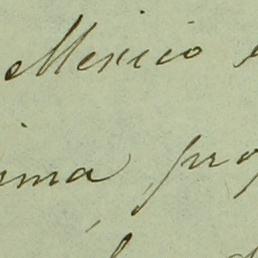 Mexico
ima pro